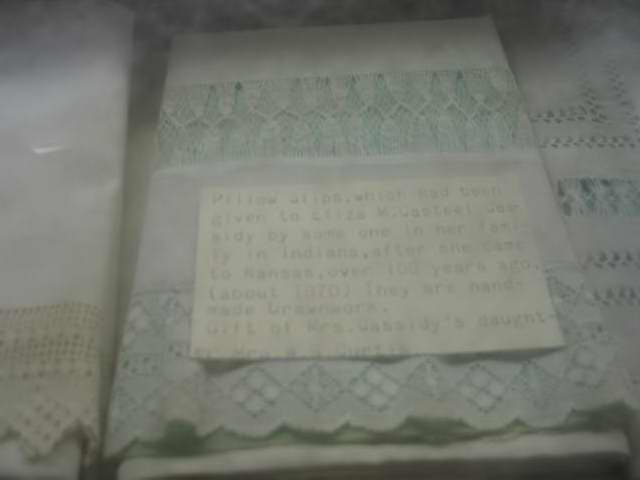 Pillow slips, which had been
given to Eliza M. Casteel Cas-
sidy by some one in her fami-
ly in Indiana, after she came
to Kansas, over 100 years ago,
(about 1870) They are hand-
made Drawnwork.
Gift of Mrs. Cassidy's daught-
Mrs.